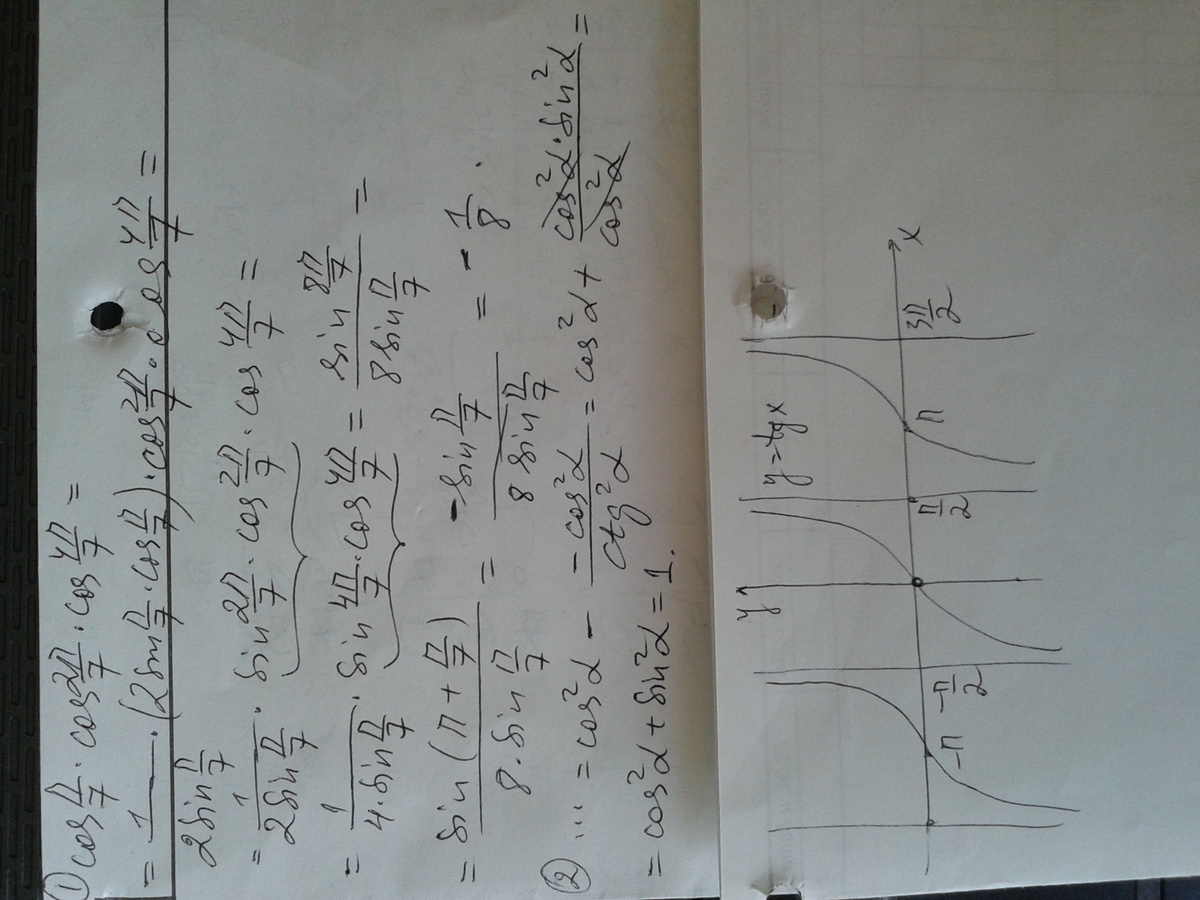 ① cos π/7 · cos 2π/7 · cos 4π/7 =
= 1/(2sin π/7) · (2sin π/7 · cos π/7) · cos 2π/7 · cos 4π/7 =
= 1/(2sin π/7) · sin 2π/7 · cos 2π/7 · cos 4π/7 =
= 1/(4·sin π/7) · sin 4π/7 · cos 4π/7 = sin 8π/7 / (8sin π/7) =
= sin(π + π/7) / (8·sin π/7) = -sin π/7 / (8 sin π/7) = - 1/8.
② ... = cos²α - -cos²α/ctg²α = cos²α + cos²α·sin²α/cos²α =
= cos²α + sin²α = 1.
y y=tgx
-π -π/2 π/2 π 3π/2 x